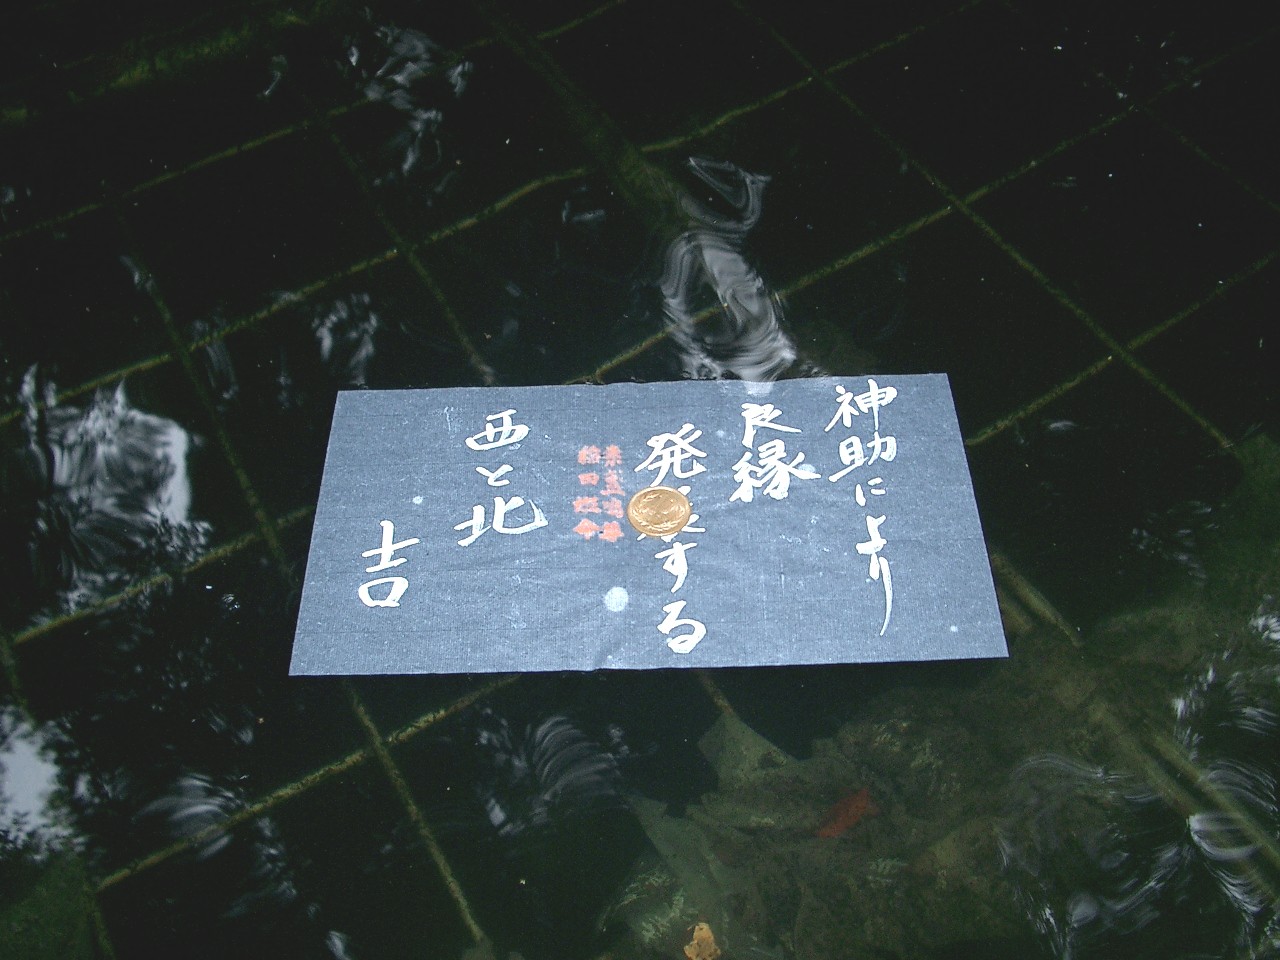 神助により
良縁
発展する
西と北
吉